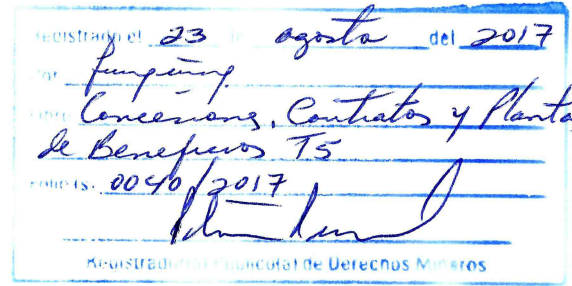 Registrado el 23 de agosto del 2017
Por
Libro Concesiones, Contratos y Plantas
de Beneficios T5
Folio (s) 0040/2017
Registrador(a) Publico(a) de Derechos Mineros